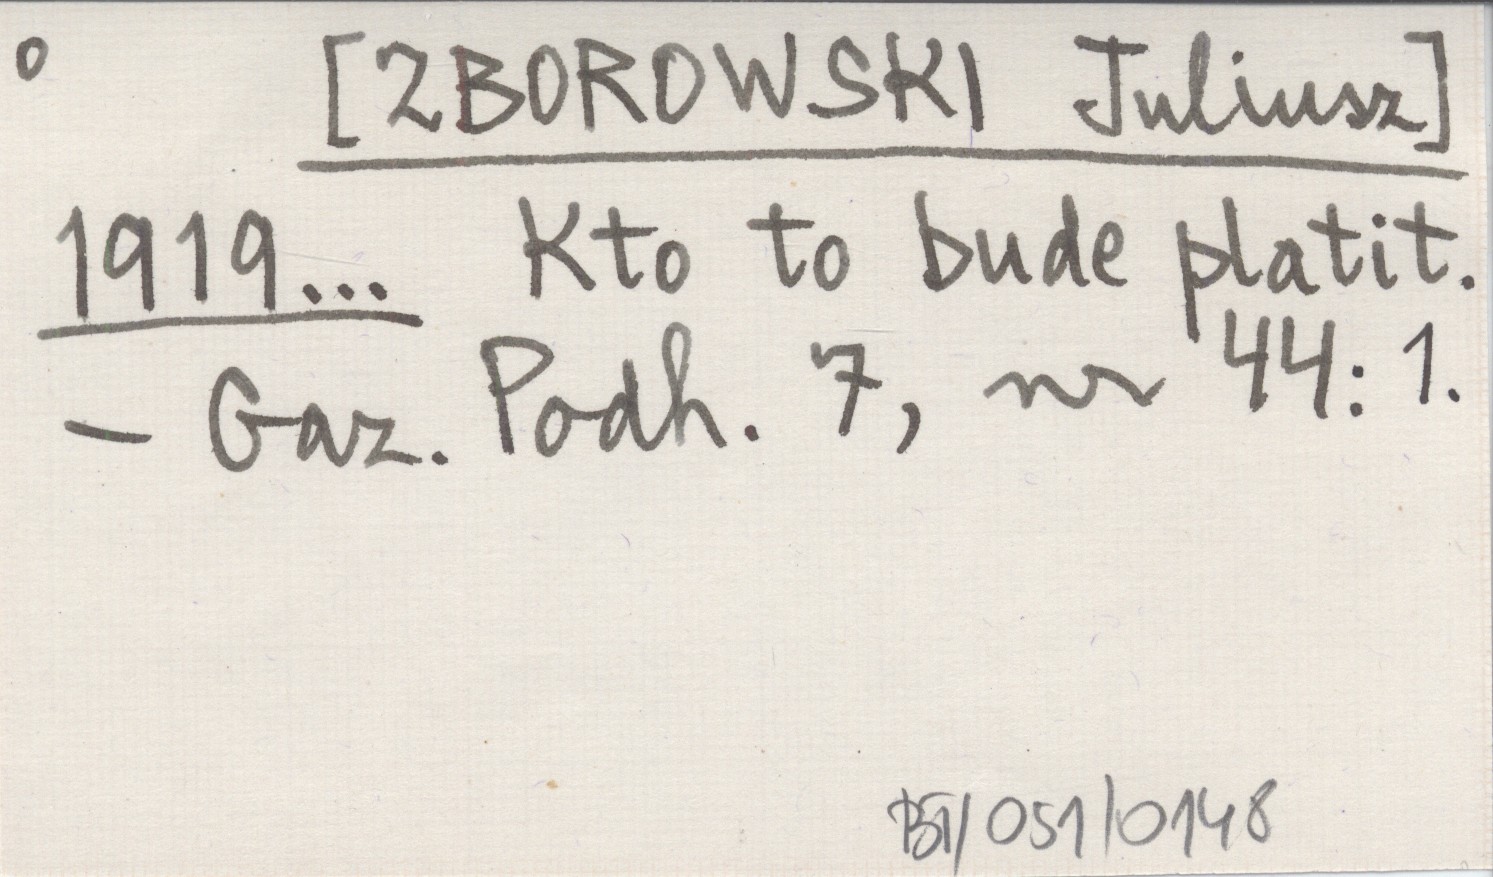 o [ZBOROWSKI Juliusz]
1919... Kto to bude platit.
– Gaz. Podh. 7, nr 44: 1.
051/0148